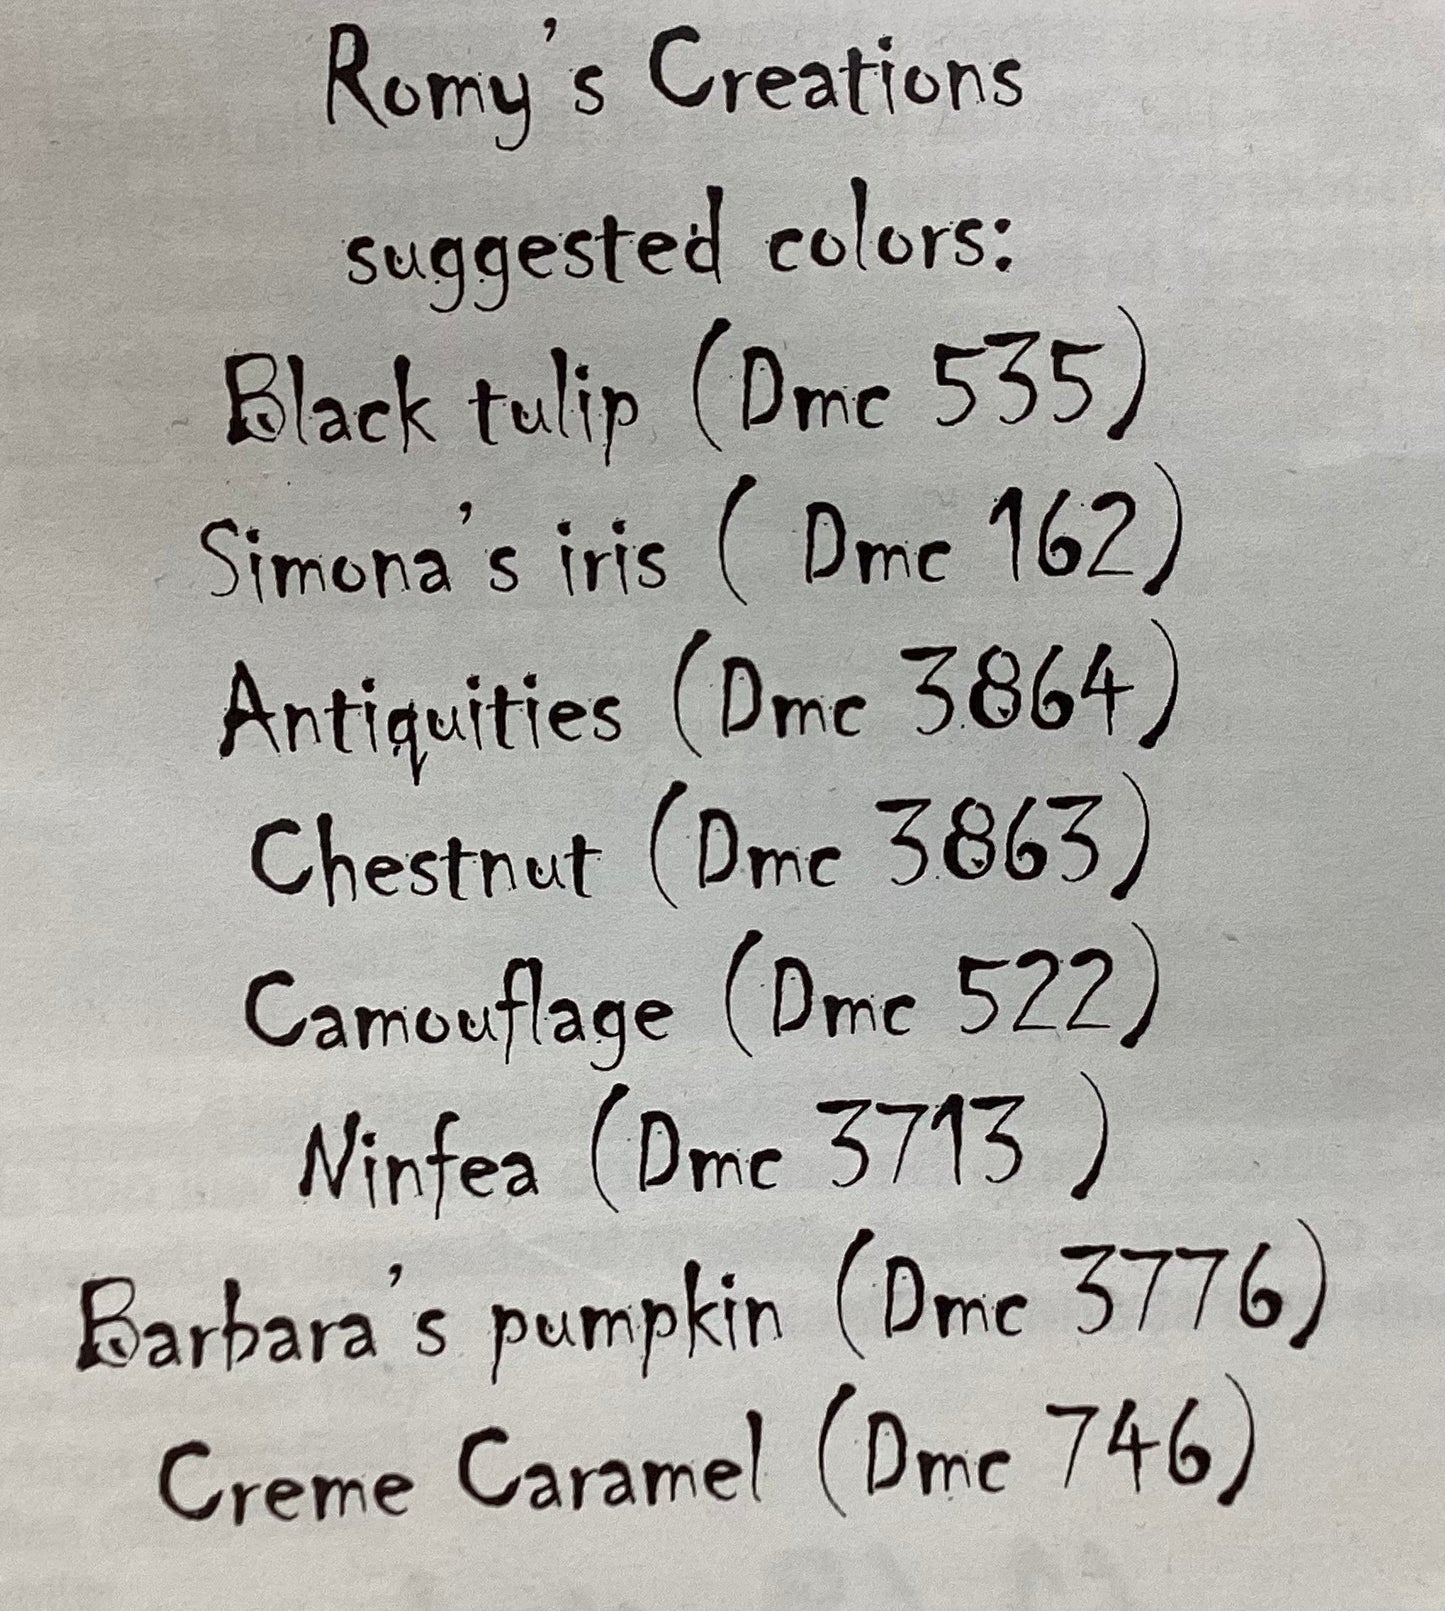 Romy's Creations
suggested colors:
Black tulip (Dmc 535)
Simona's iris ( Dmc 162)
Antiquities (Dmc 3864)
Chestnut (Dmc 3863)
Camouflage (Dmc 522)
Ninfea (Dmc 3713 )
Barbara's pumpkin (Dmc 3776)
Creme Caramel (Dmc 746)